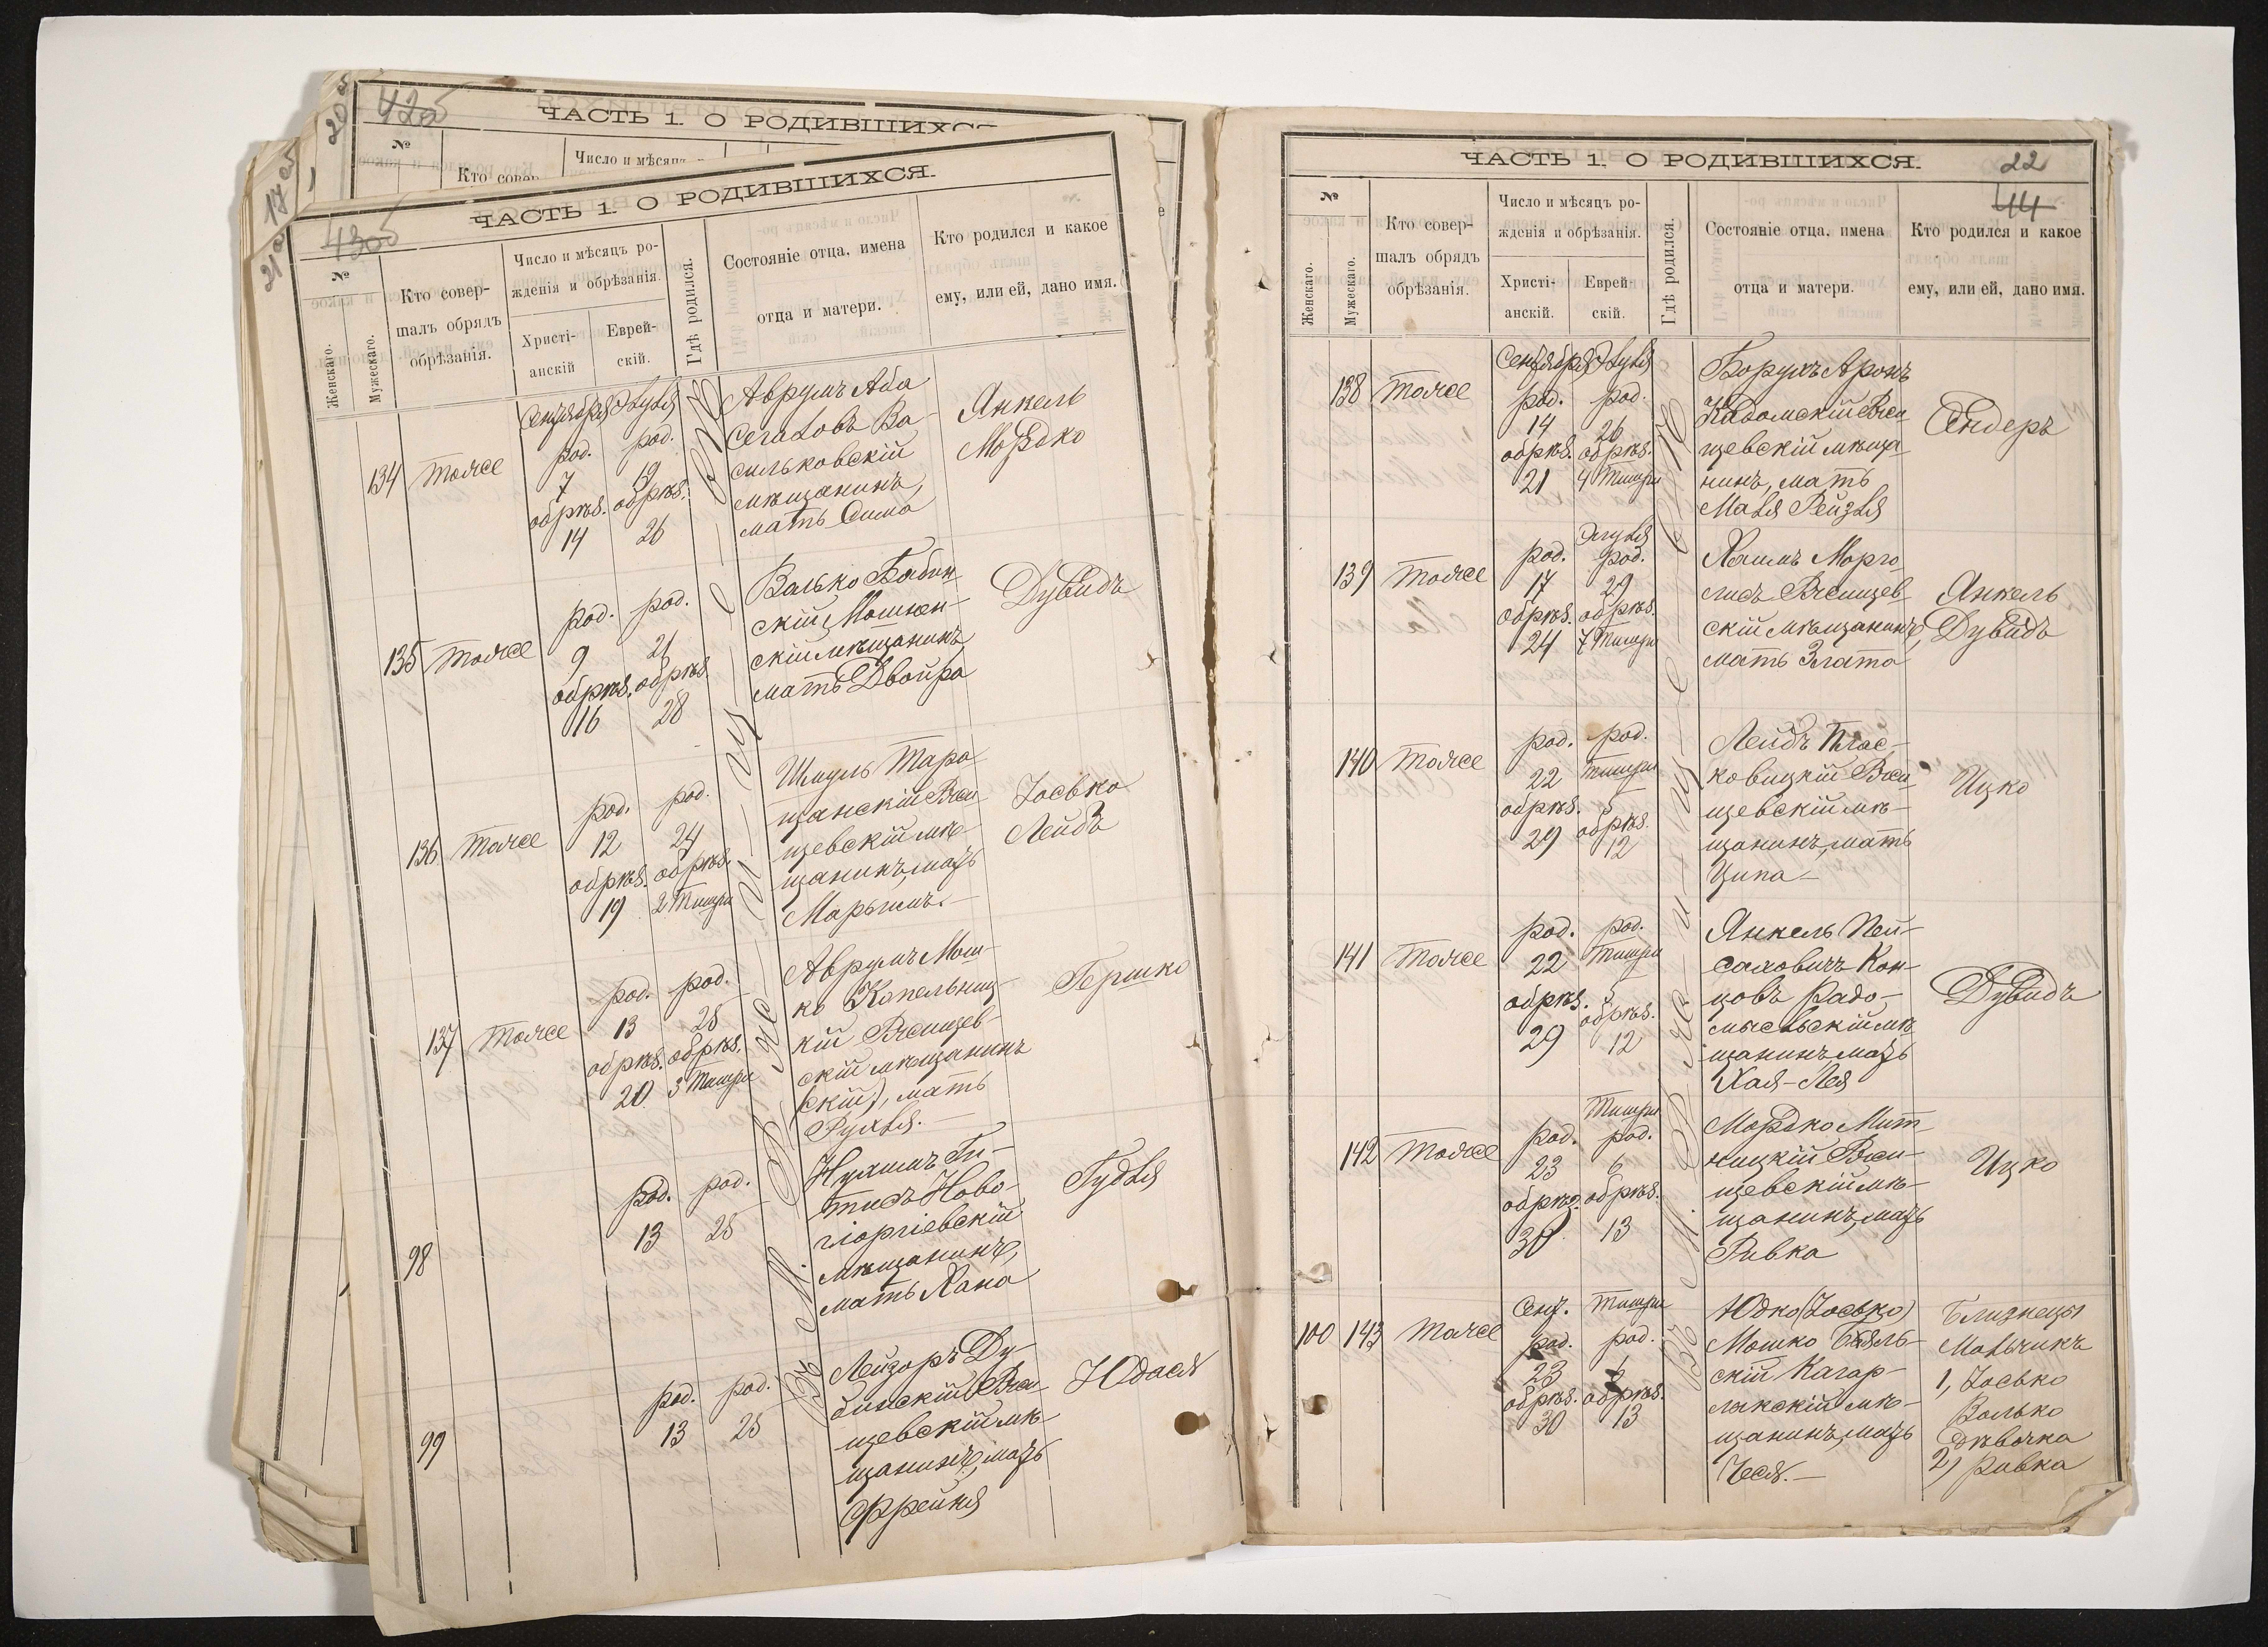 17 об
20 об
21 об
42 об
ЧАСТЬ 1. О РОДИВШИХСЯ
№
Кто совер
Число и мѣсяцъ
43 об
ЧАСТЬ 1. О РОДИВШИХСЯ.
№
Женскаго.
Мужескаго.
Кто совер-
шалъ обрядъ
обрѣзанія.
Число и мѣсяцъ ро-
жденія и обрѣзанія.
Христі-
анскій
Еврей-
скій.
Гдѣ родился.
Состояніе отца, имена
отца и матери.
Кто родился и какое
ему, или ей, дано имя.
134
Тоже
Сентября
род.
7
обрѣз.
14
Элуля
род.
19
обрѣз.
26
Аврумъ Аба
Сегаловъ Ва-
сильковскій
мѣщанинъ,
мать Сима
Янкель
Мордко
135
Тоже
род.
9
обрѣз.
16
род.
21
обрѣз.
28
Валько Бабин
скій Мошен-
скій мѣщанинъ
мать Двойра
Дувидъ
136
Тоже
род.
12
обрѣз.
19
род.
24
обрѣз.
2 Тишри
Шмуль Тара
щанскій Ржи
щевскій мѣ-
щанинъ, мать
Марьямъ.-
Іосько
Лейбъ
137
Тоже
род.
13
обрѣз.
20
род.
25
обрѣз.
3 Тишри
Аврумъ Мош-
ко Капельниц-
кій Ржищев-
скій мѣщанинъ
скій), мать
Рухля.-
Гершко
98
род.
13
род.
25
Нухимъ Ги-
тисъ Ново-
гіоргіевскій
мѣщанинъ,
мать Хана
Гудля
99
род.
13
род.
25
Лейзоръ Ду-
бинскій Ржи
щевскій мѣ-
щанинъ, мать
Фрейня
Юдася
Въ М. Ржищевѣ
ЧАСТЬ 1. О РОДИВШИХСЯ.
22
44
№
Женскаго.
Мужескаго.
Кто совер-
шалъ обрядъ
обрѣзанія.
Число и мѣсяцъ ро-
жденія и обрѣзанія.
Христі-
анскій.
Еврей-
скій.
Гдѣ родился.
Состояніе отца, имена
отца и матери.
Кто родился и какое
ему, или ей, дано имя.
138
Тоже
Сентября
род.
14
обрѣз.
21
Элуля
род.
26
обрѣз.
4 Тишри
Борухъ Аронъ
Радомскій Ржи
щевскій мѣща
нинъ, мать
Маля Рейзля
Сендеръ
139
Тоже
род.
17
обрѣз.
24
Элуля
род.
29
обрѣз.
7 Тишри
Хаимъ Марго
лисъ Ржищев
скій мѣщанинъ,
мать Злата
Янкель
Дувидъ
140
Тоже
род.
22
обрѣз.
29
род.
Тишри
5
обрѣз.
12
Лейбъ Плас-
ковицкій Ржи
щевскій мѣ-
щанинъ, мать
Ципа-
Ицко
141
Тоже
род.
22
обрѣз.
29
род.
Тишри
5
обрѣз.
12
Янкель Пей-
саховичъ Кон-
цовъ Радо-
мысльскій мѣ
щанинъ, мать
Хая-Лея
Дувидъ
142
Тоже
род.
23
обрѣз.
30
Тишри
род.
6
обрѣз.
13
Мордко Мит
ницкій Ржи-
щевскій мѣ-
щанинъ, мать
Ривка
Ицко
100
143
Тоже
Сент.
род.
23
обрѣз.
30
Тишри
род.
6
обрѣз.
13
Юдко (Іосько)
Мошко Бѣль-
скій Кагар-
лыкскій мѣ-
щанинъ, мать
Чеся.-
Близнецы
Мальчикъ
1, Іосько
Валько
дѣвочка
2) Ривка
Въ М. Ржищевѣ